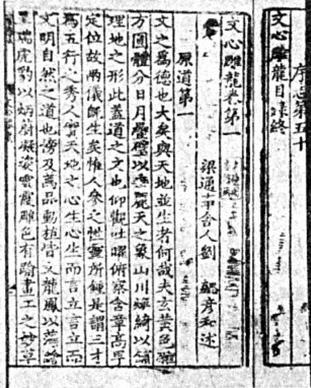 序志第五十
文心雕龍目錄終
文心雕龍卷第一
梁通事舍人劉勰彦和述
原道第一
文之爲德也大矣與天地並生者何哉夫玄黄色雜
方圓體分日月疊璧以垂麗天之象山川煥綺以鋪
理地之形此蓋道之文也仰觀吐曜俯察含章髙卑
定位故兩儀旣生矣惟人參之性靈所鍾是謂三才
爲五行之秀人實天地之心生心生而言立言立而
文明自然之道也傍及萬品動植皆文龍鳳以藻繪
呈瑞虎豹以炳蔚凝姿雲霞雕色有踰畫工之妙草